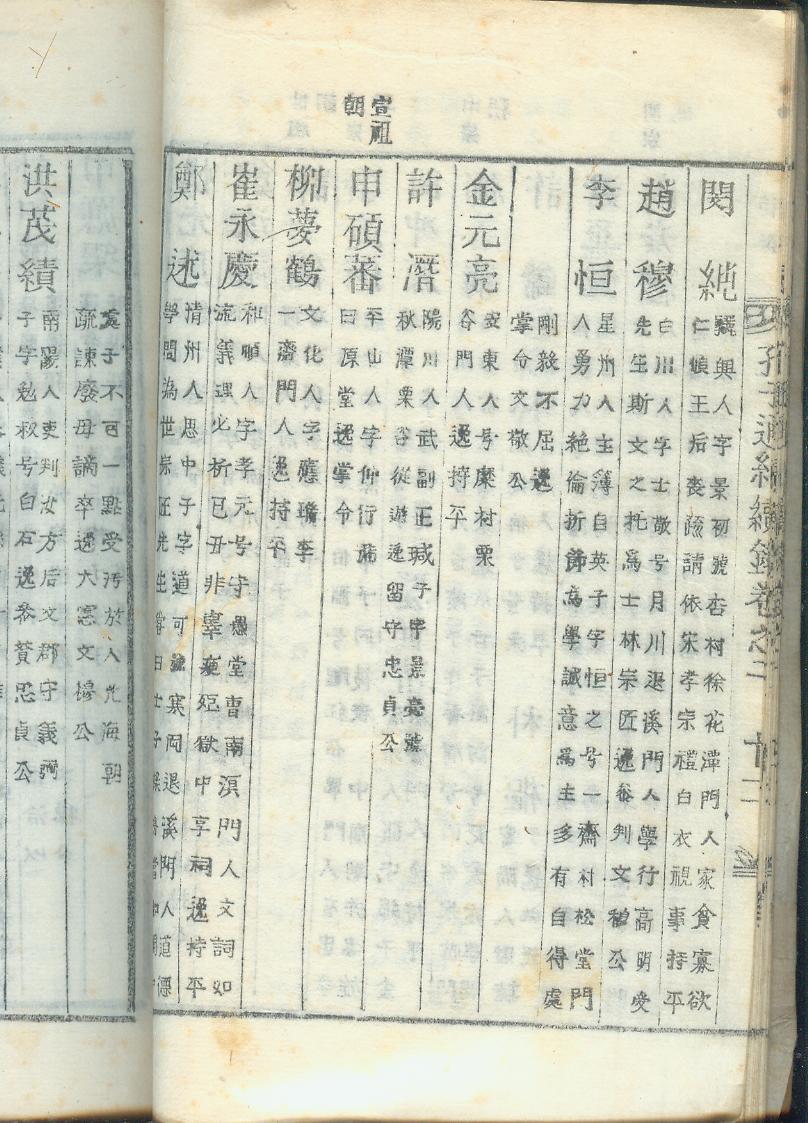 孔子通編續錄卷之二 十二
閔純 驪興人字景初號杏柯徐花潭門人家貧寡欲
仁順王后喪疏請依宋孝宗禮白衣視事持平
趙穆 白川人字士敬号月川退溪門人學行高明受
先生斯文之托爲士林宗匠逸參判文穆公
李恒 星州人主簿自英子字恒之号一齋朴松堂門
人勇力絶倫折節爲學誠意爲主多有自得處
剛毅不屈逸
掌令文敬公
金元亮 安東人号麋村栗
谷門人逸持平
許潛 陽川人武副正瑊子字景亮號
秋潭栗谷從遊逸留守忠貞公
宣祖
朝
申碩蕃 平山人字仲行號
曰原堂逸掌令
柳夢鶴 文化人字應瑞李
一齋門人逸持平
崔永慶 和順人字孝元号守愚堂曺南溟門人文詞如
流義理必析己丑非辜瘐死獄中享祠逸持平
鄭逑 淸州人思中子字道可號寒岡退溪門人道德
學問爲世宗匠先生
處子不可一點受汚於人光海朝
疏諫廢母謫卒逸大憲文穆公
洪茂績 南陽人吏判女方后文郡守義弼
子字勉叔号白石逸參贊忠貞公